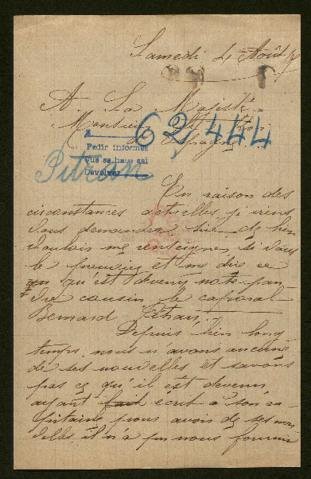 Samedi 4 Août
A Sa Majesté
Monsieur Le Roi
d'Espagne
62,444
Pedir informes
Devolver
Pitrau
En raison des
circonstances actuelles je viens
Vous demander Sire de bien
vouloir me renseigner si Vous
le pouviez et me dire ce
qu'est devenu notre pauvre
cousin le caporal
Bernard
Depuis bien long
temps nous n'avons aucune
de ses nouvelles et savons
pas ce qu'il est devenu
ayant fait écrit à son ca-
pitaine pour avoir de ses nou
velles, il n'a pu nous fournir